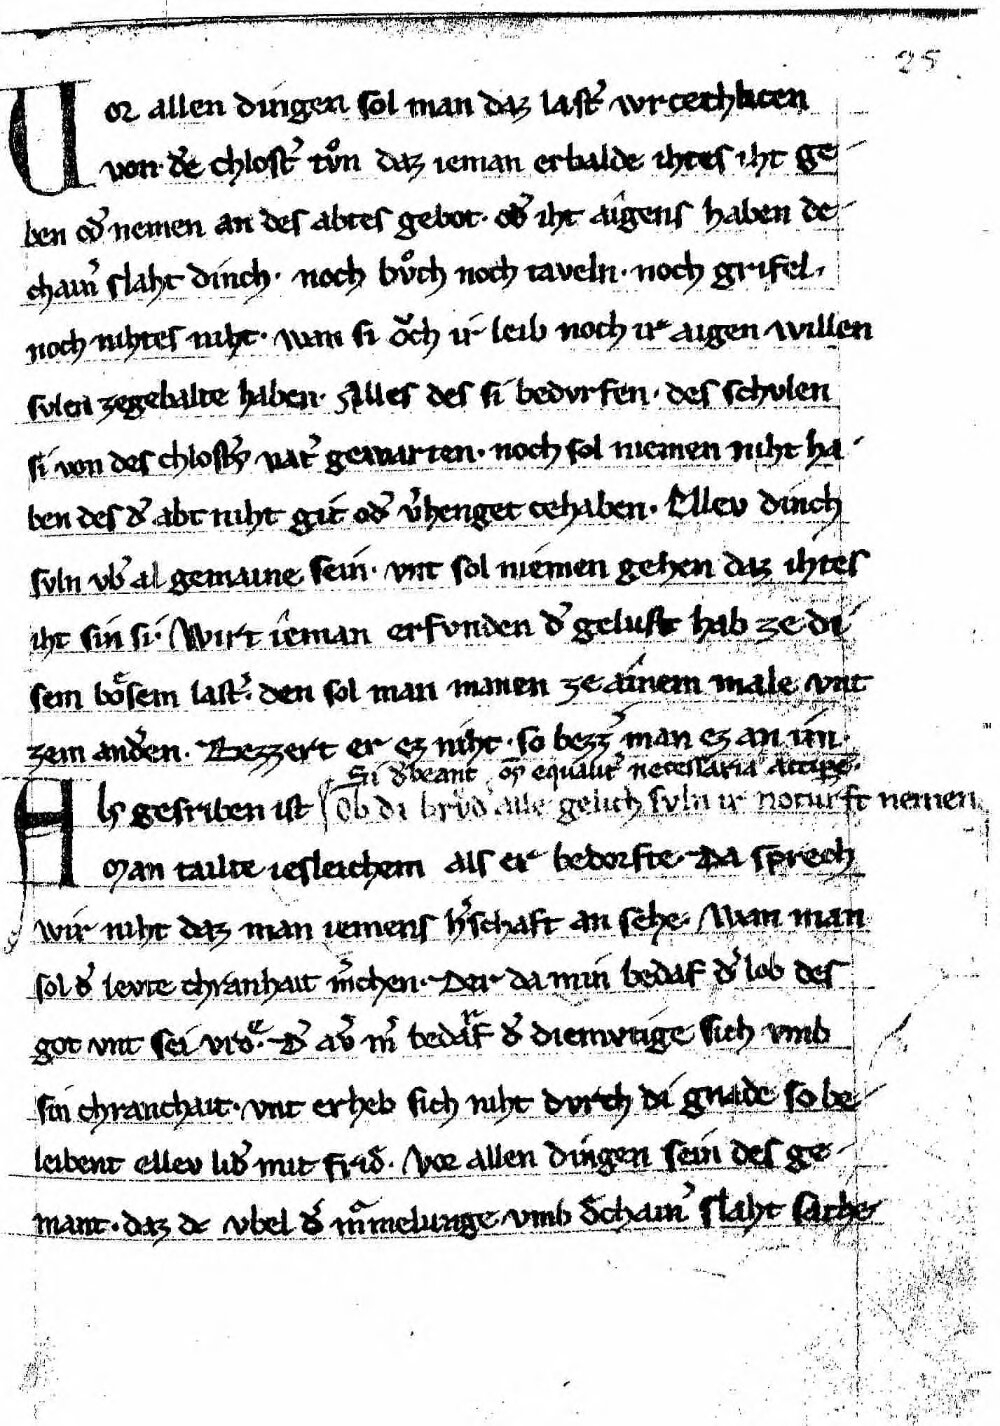 25
Uor allen dingen sol man daz last͛ wrcechlicen
von d͛e chlost͛ tůn daz ieman erbalde ihtes iht ge-
ben od͛ nemen an des abtes gebot· od͛ iht aîgens haben de-
chain͛ slaht dinch· noch bůch noch taveln· noch grifel·
noch nihtes niht· wan si ǒch ir leib noch ir aigen willen
svlen zegebalte haben· Alles des si bedvrfen· des schvlen
si von des chlost͛s vat͛ gewarten· noch sol niemen niht ha-
ben des d͛ abt niht git od͛ v͛henget cehaben· Ellev dinch
svln vb͛ al gemaine sein· vnt sol niemen gehen daz ihtes
iht sin si· Wirt îeman erfvnden d͛ gelust hab ze di-
sem bosem last͛· den sol man manen ze aînem male vnt
zem and͛en· Bezzert er ez niht· so bezz͛ man ez an im·
Si d͛beant om̄s equalit͛ necessaria accipe͛·
Als gesriben ist Ob di brůd͛ alle gelich svln ir noturft nemen
Man tailte iesleichem als er bedorfte· Da sprech
wir niht daz man iemens h͛schaft an sehe· Wan man
sol d͛ levte chranhait m͛chen· Der da min bedaf d͛ lob des
got vnt sei vro· D͛ av͛ m͛ bedarf d͛ diemvtige sich vmb
sin chranchait· vnt erheb sich niht dvrch di gnade so be-
leibent ellev lid͛ mit frid͛· Vor allen dingen sein des ge-
mant· daz de vbel d͛ mͣrmelunge vmb d͛chain͛ slaht sache·